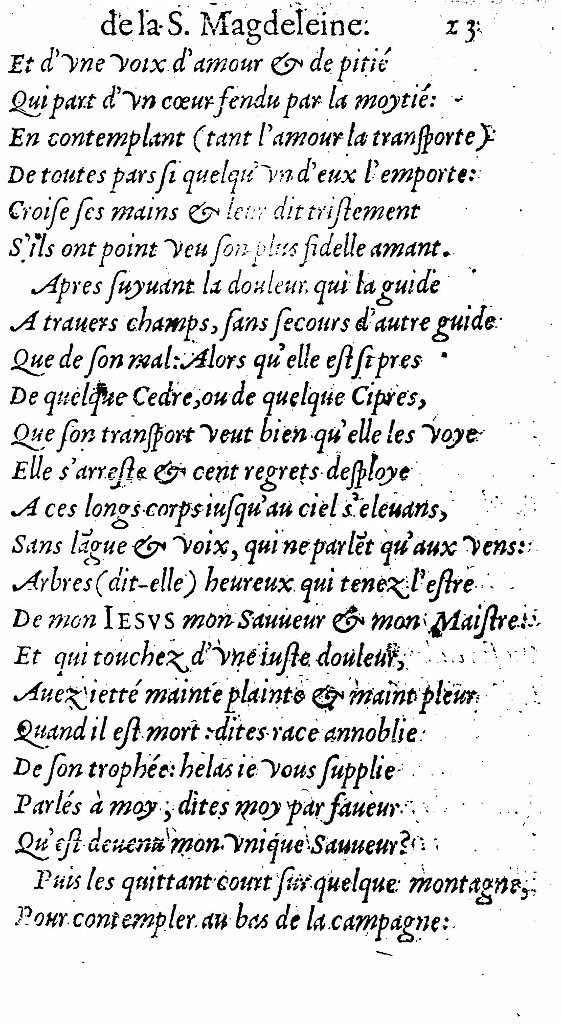 de la S. Magdeleine. 23
Et d'vne voix d'amour & de pitié
Qui part d'vn cœur fendu par la moytié:
En contemplant (tant l'amour la transporte)
De toutes pars si quelqu'vn d'eux l'emporte:
Croise ses mains & leur dit tristement
S'ils ont point veu son plus fidelle amant.
Apres suyuant la douleur qui la guide
A trauers champs, sans secours d'autre guide
Que de son mal: Alors qu'elle est si pres
De quelque Cedre, ou de quelque Cipres,
Que son transport veut bien qu'elle les voye
Elle s'arreste & cent regrets desploye
A ces longs corps iusqu'au ciel s'eleuans,
Sans lãgue & voix, qui ne parlẽt qu'aux vens:
Arbres (dit-elle) heureux qui tenez l'estre
De mon IESVS mon Sauueur & mon Maistre:
Et qui touchez d'vne iuste douleur,
Auez ietté mainte plainte & maint pleur
Quand il est mort: dites race annoblie
De son trophée: helas ie vous supplie
Parlés à moy, dites moy par faueur
Qu'est deuenu mon vnique Sauueur?
Puis les quittant court sur quelque montagne,
Pour contempler au bas de la campagne: